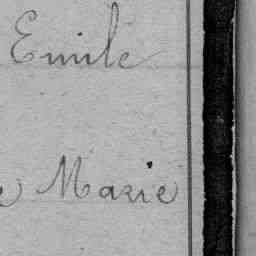 Emile
Marie